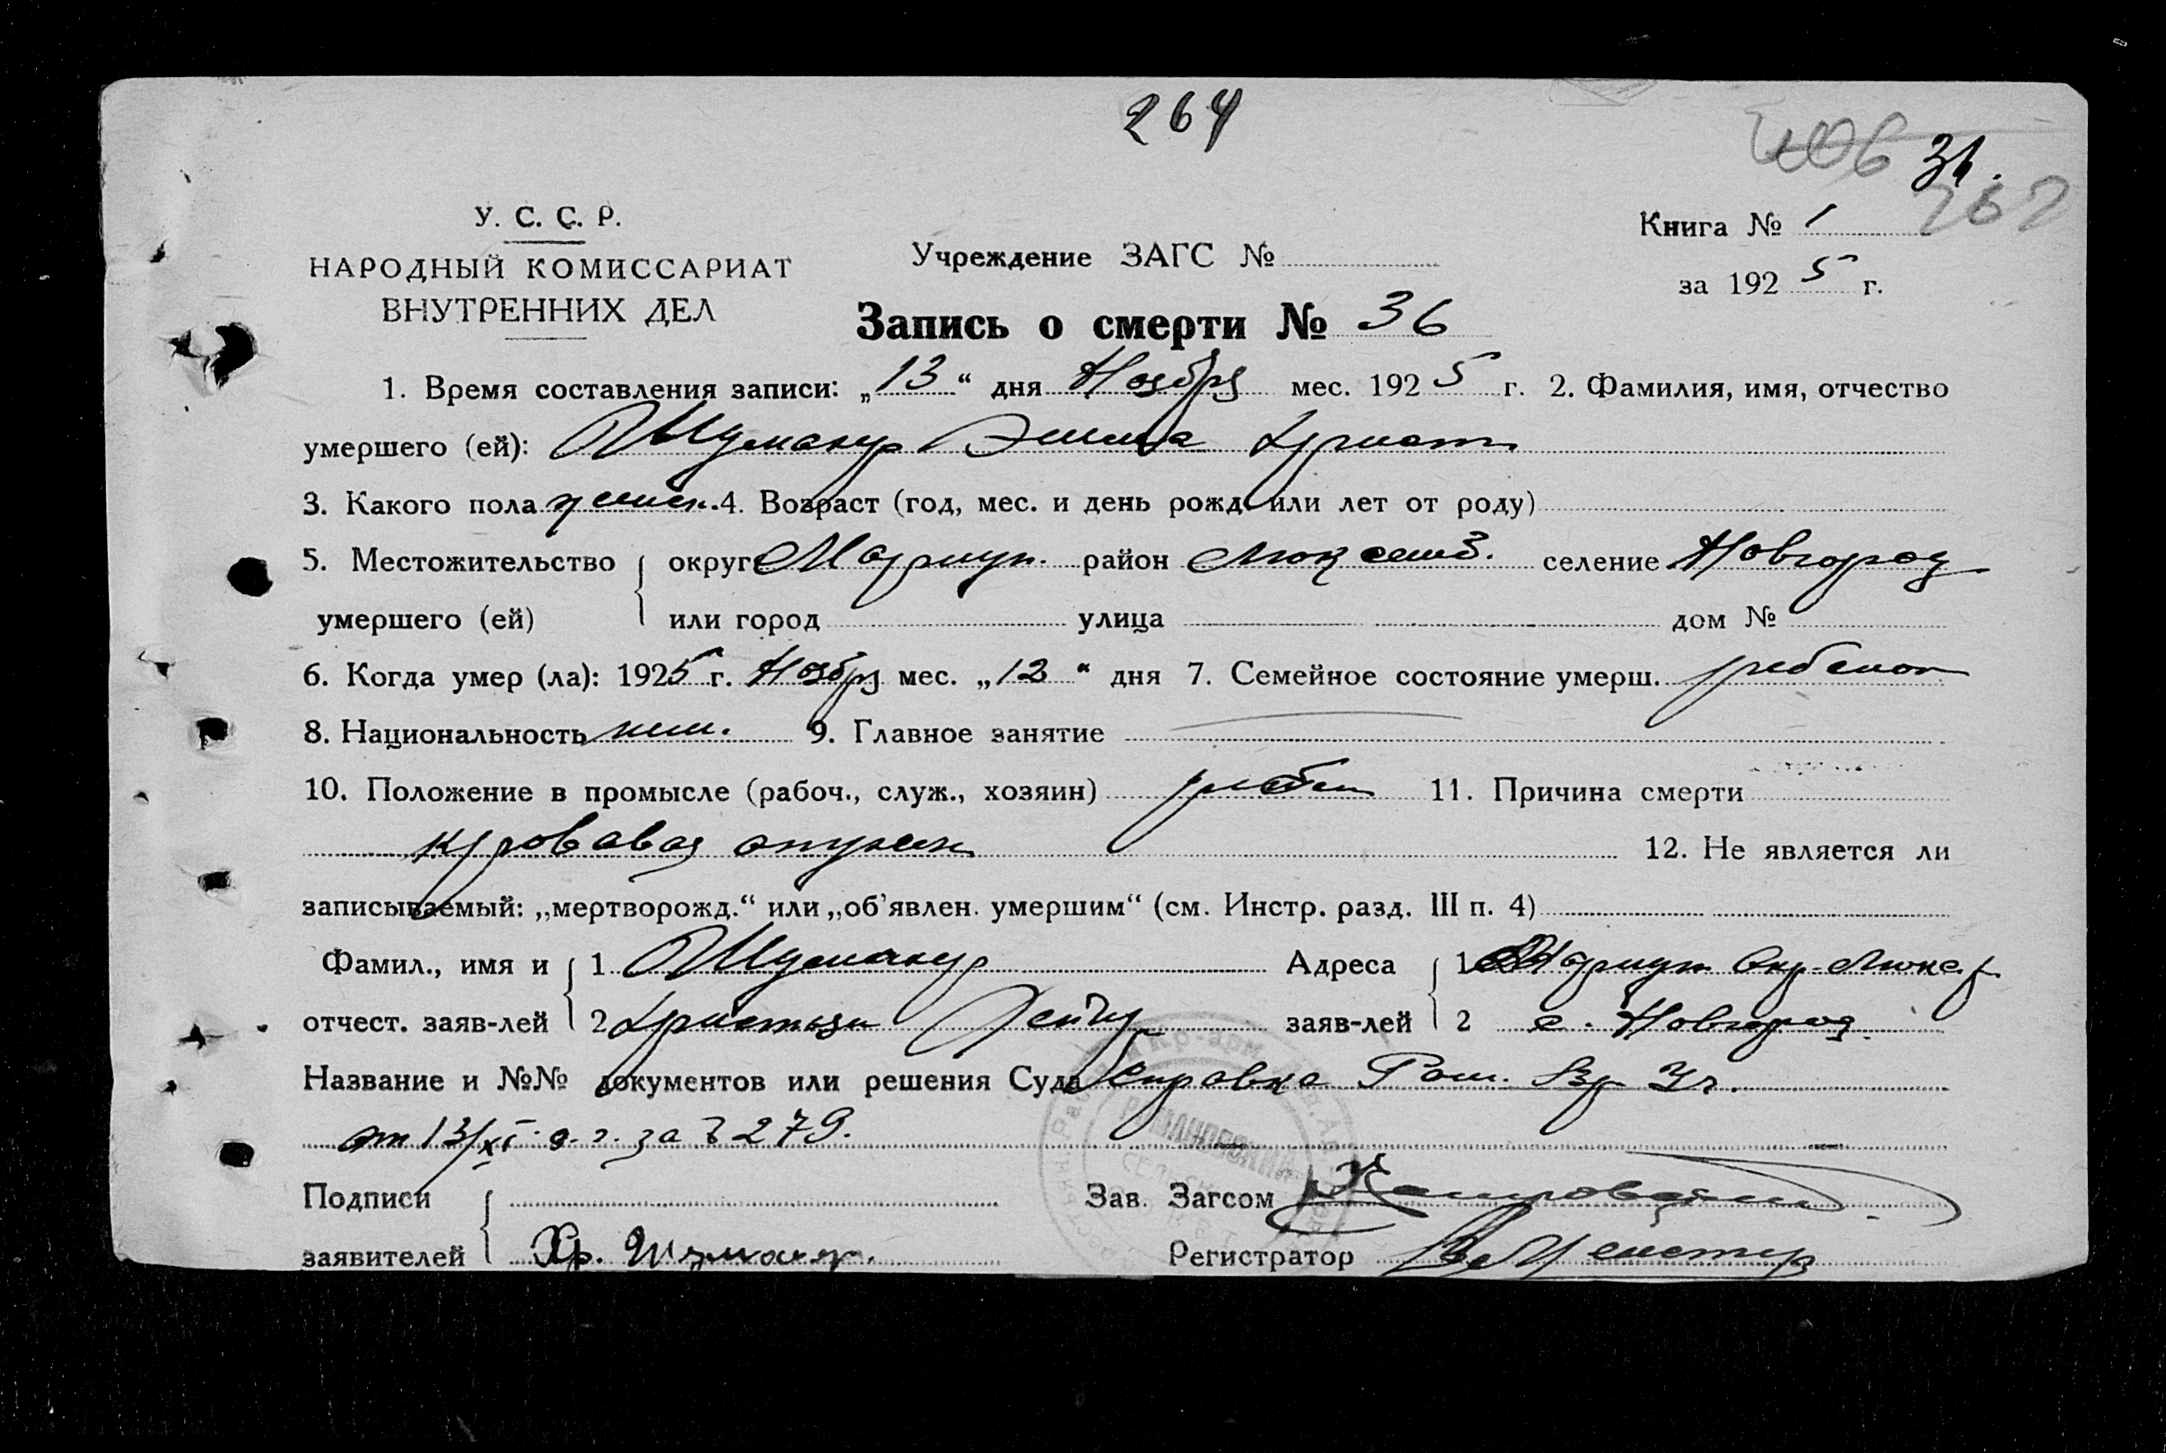 264
36.
У. С. С. Р.
НАРОДНЫЙ КОМИССАРИАТ
ВНУТРЕННИХ ДЕЛ
Учреждение ЗАГС №
Книга № 1
за 1925 г.
Запись о смерти № 36
1. Время составления записи: „13“ дня Ноября мес. 1925 г. 2. Фамилия, имя, отчество
умершего (ей): Шумахер Эмма Христ.
3. Какого пола женск. 4. Возраст (год, мес. и день рожд. или лет от роду)
5. Местожительство округ Мариуп. район Люксемб. селение Новгород
умершего (ей) или город улица дом №
6. Когда умер (ла): 1925 г. Ноябр мес. „12“ дня 7. Семейное состояние умерш. ребенок
8. Национальность нем. 9. Главное занятие
10. Положение в промысле (рабоч., служ., хозяин) 11. Причина смерти
кровавая 12. Не является ли
записываемый: „мертворожд.“ или „об'явлен. умершим“ (см. Инстр. разд. III п. 4)
Фамил., имя и 1 Шумахер Адреса 1 Мариуп Окр. Люкс. р.
отчест. заяв-лей 2 Христьян заяв-лей 2 с. Новгород.
Название и №№ документов или решения Суда Справка
от 13/XI с. г. за № 279.
Подписи Зав. Загсом
заявителей Хр. Шумахер. Регистратор